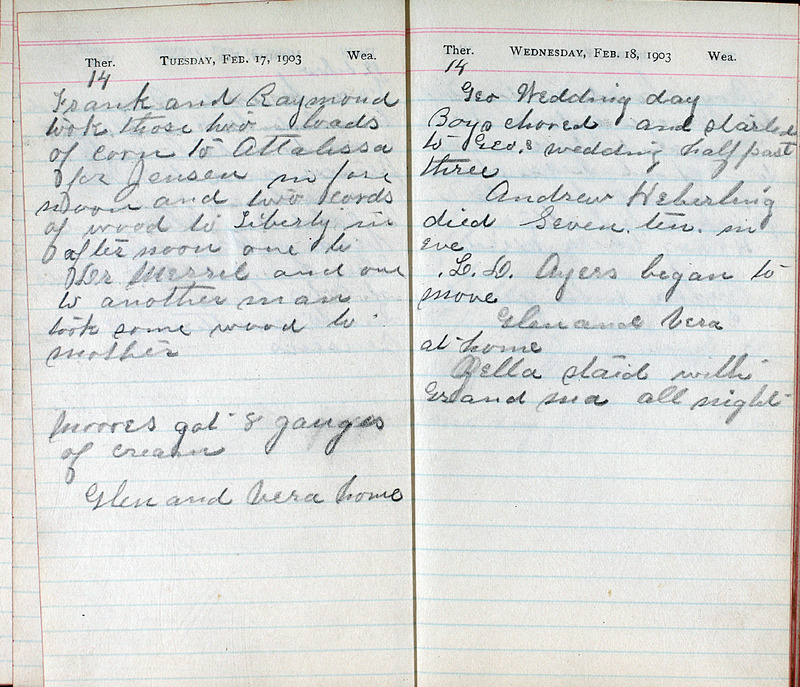 Ther. TUESDAY, FEB. 17, 1903 Wea.
14
Frank and Raymond
took those two loads
of corn to Attalissa
for Jensen in fore
noon and two cords
of wood to Liberty in
after noon one to
Dr Merrel and one
to another man
took some wood to
mother
Moores got 8 gauges
of cream
Glen and Vera home
Ther. WEDNESDAY, FEB. 18, 1903 Wea.
14
Geo Wedding day
Boys chored and started
to Geo.s wedding half past
three
Andrew Heberling
died Seven. ten. in
eve
L. D. Ayers began to
move
Glen and Vera
at home
Zella staid with
Grand ma all night